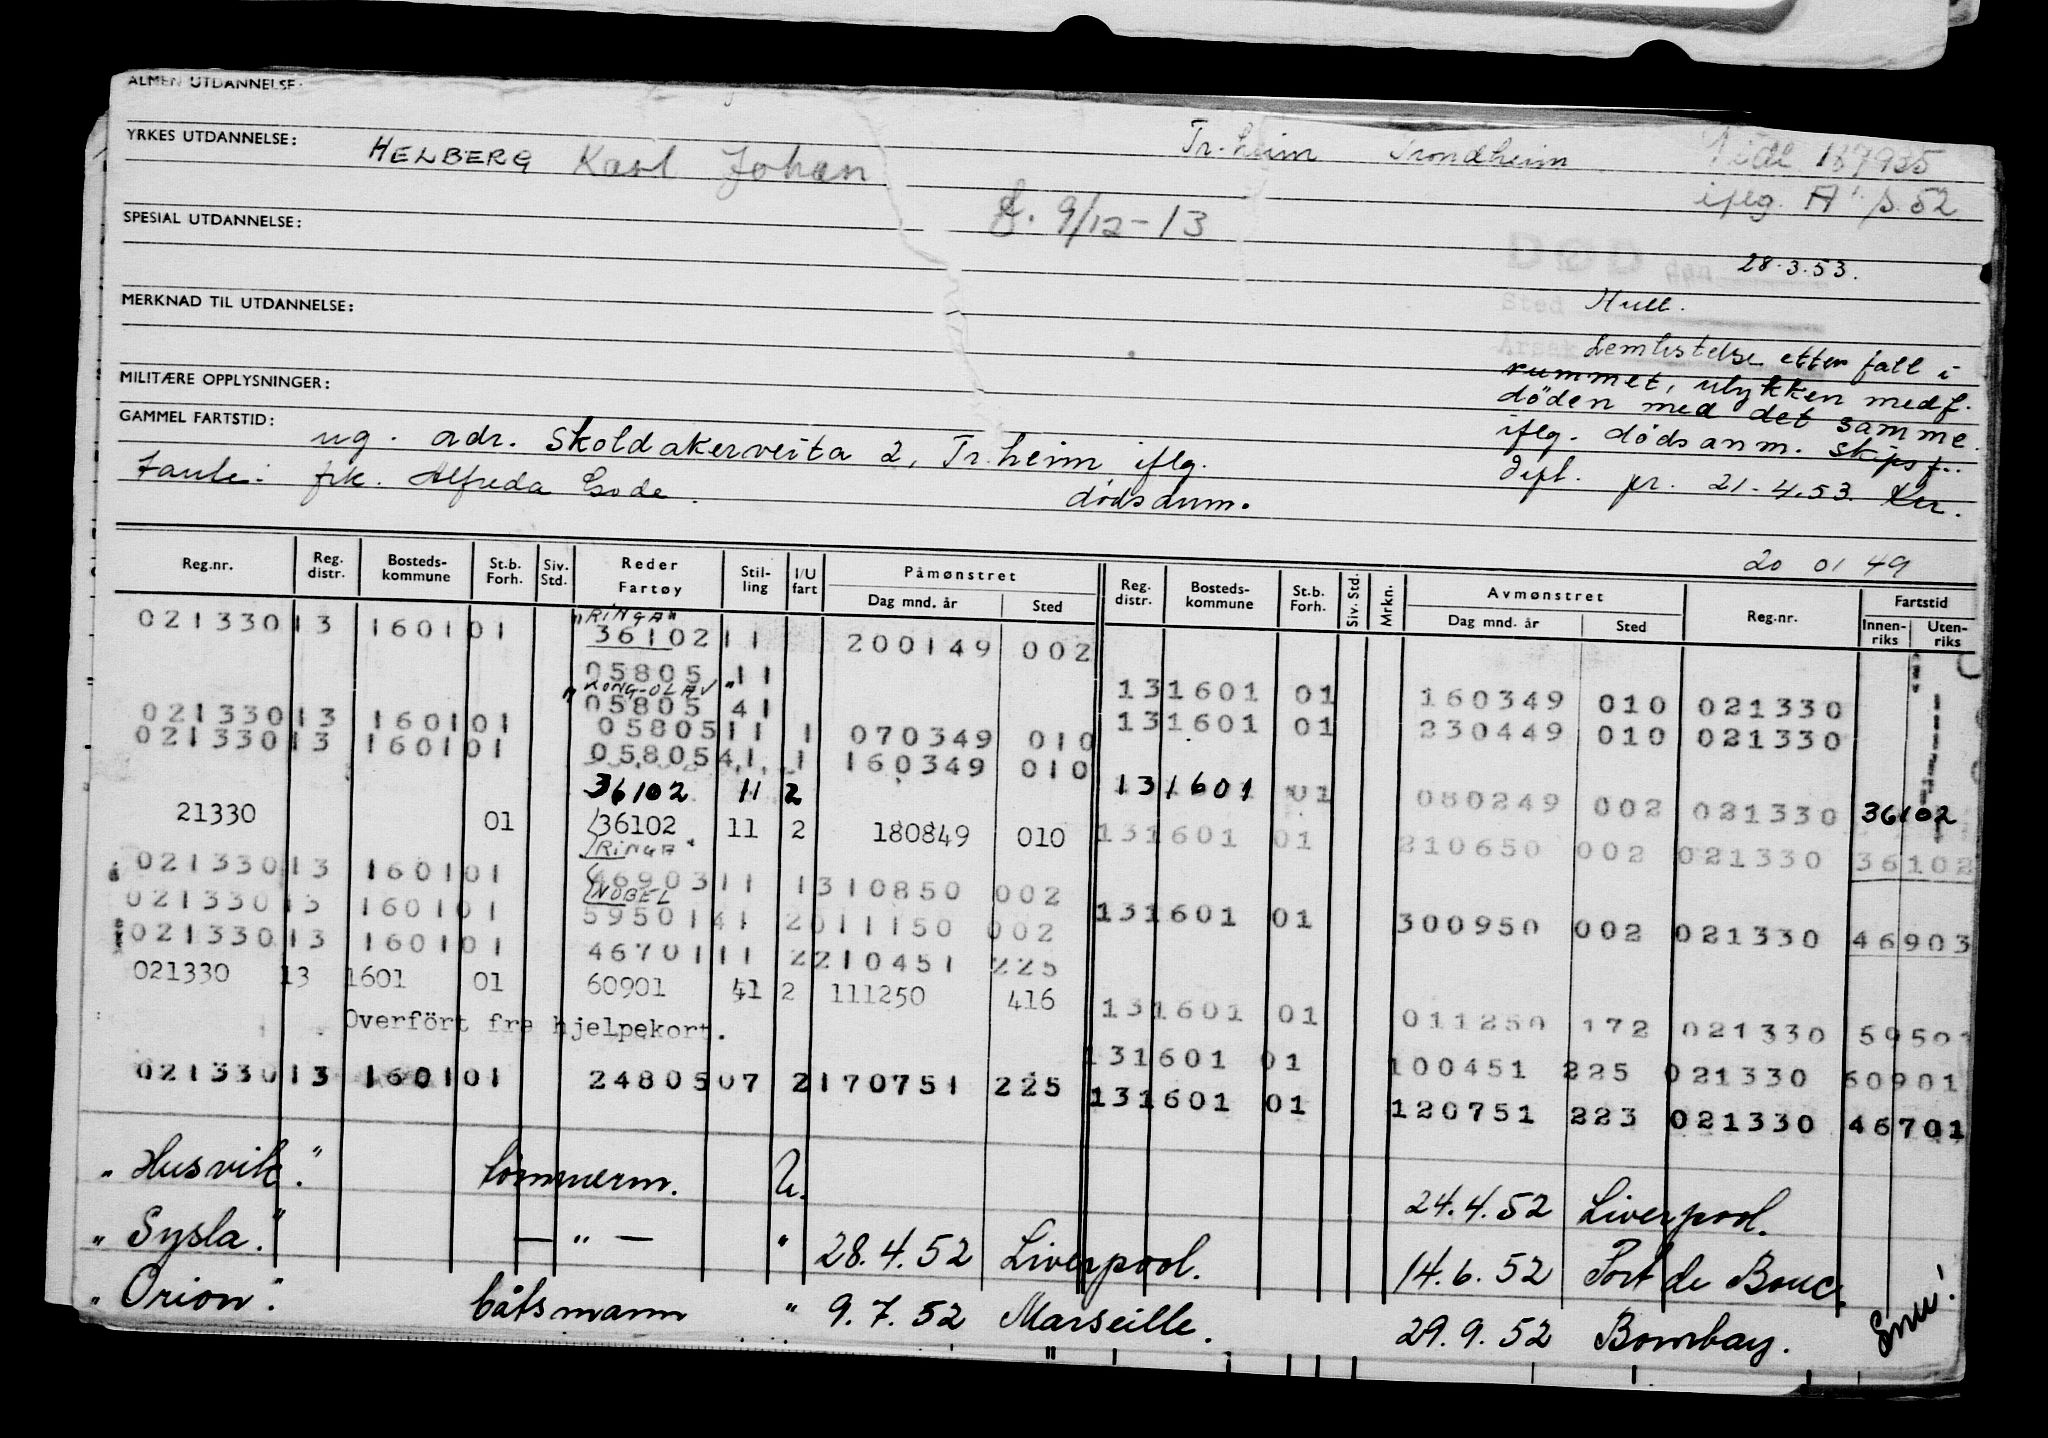 ALMEN UTDANNELSE:
YRKES UTDANNELSE: HELBERG Karl Johan Tr.heim Trondheim 187935
iflg. A 52
f. 9/12-13
SPESIAL UTDANNELSE:
DØD den 28.3.53.
MERKNAD TIL UTDANNELSE: Sted Hull.
Årsak Lemlestelse etter fall i
MILITÆRE OPPLYSNINGER: rummet, ulykken medf.
døden med det samme
GAMMEL FARTSTID: iflg. dødsanm. skipsf..
ug. adr. Skoldakerveita 2, Tr.heim iflg. dødsanm.
Tante: frk. Alfreda Gode.
pr. 21.4.53.
20 01 49
Reg.nr. Reg. distr. Bosteds-kommune St.b. Forh. Siv. Std. Reder Fartøy Stil-ling I/U fart Påmønstret Dag mnd. år Sted Reg. distr. Bosteds-kommune St.b. Forh. Siv. Std. Mrkn. Avmønstret Dag mnd. år Sted Reg.nr. Fartstid Innen-riks Uten-riks
"RINGA"
021330 13 1601 01 36102 11 200149 002
05805 11 131601 01 160349 010 021330
"KONG-OLAV"
05805 41 131601 01 230449 010 021330
021330 13 1601 01 05805 11 1 070349 010
021330 13 1601 01 05805 41 1 160349 010
36102 11 2 131601 01 080249 002 021330 36102
21330 01 36102 11 2 180849 010 131601 01 210650 002 021330 36102
"RINGA"
021330 13 1601 01 46903 11 1 310850 002 131601 01 300950 002 021330 46903
NOBEL
021330 13 1601 01 59501 41 2 011150 002
021330 13 1601 01 46701 11 2 210451 225
021330 13 1601 01 60901 41 2 111250 416 131601 01 011250 172 021330 59501
Overført fra hjelpekort.
131601 01 100451 225 021330 60901
021330 13 1601 01 24805 07 2 170751 225 131601 01 120751 223 021330 46701
"Husvik." tømmerm. U. 24.4.52 Liverpool.
"Sysla." — " — " 28.4.52 Liverpool. 14.6.52 Port de Bouc.
"Orion." båtsmann " 9.7.52 Marseille. 29.9.52 Bombay.